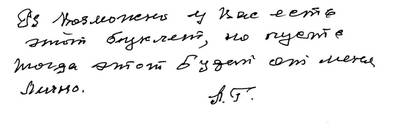 Возможно у Вас есть
этот буклет, но пусть
тогда этот будет от меня
лично.
А.Г.